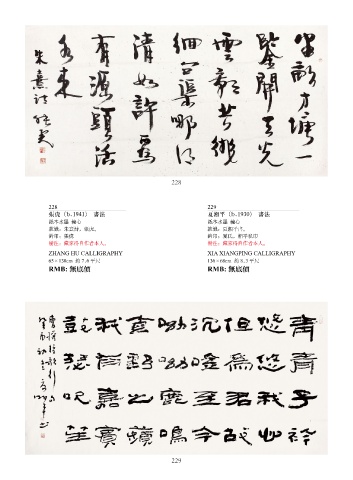 半畝方塘一
鑒開天光
雲影共徘
徊問渠那得
清如許爲
有源頭活
水來
朱熹詩 張虎
228
228
張虎（b.1941） 書法
紙本水墨 鏡心
款識：朱熹詩。張虎。
鈐印：張虎
藏家得自作者本人。
ZHANG HU CALLIGRAPHY
65×138cm 約 7.6 平尺
RMB: 無底價
229
夏湘平（b.1930） 書法
紙本水墨 鏡心
款識：
鈐印：
藏家得自作者本人。
XIA XIANGPING CALLIGRAPHY
136×68cm 約 8.3 平尺
RMB: 無底價
青青子衿
悠悠我心
但爲君故
沉吟至今
呦呦鹿鳴
食野之蘋
我有嘉賓
鼓瑟吹笙
229